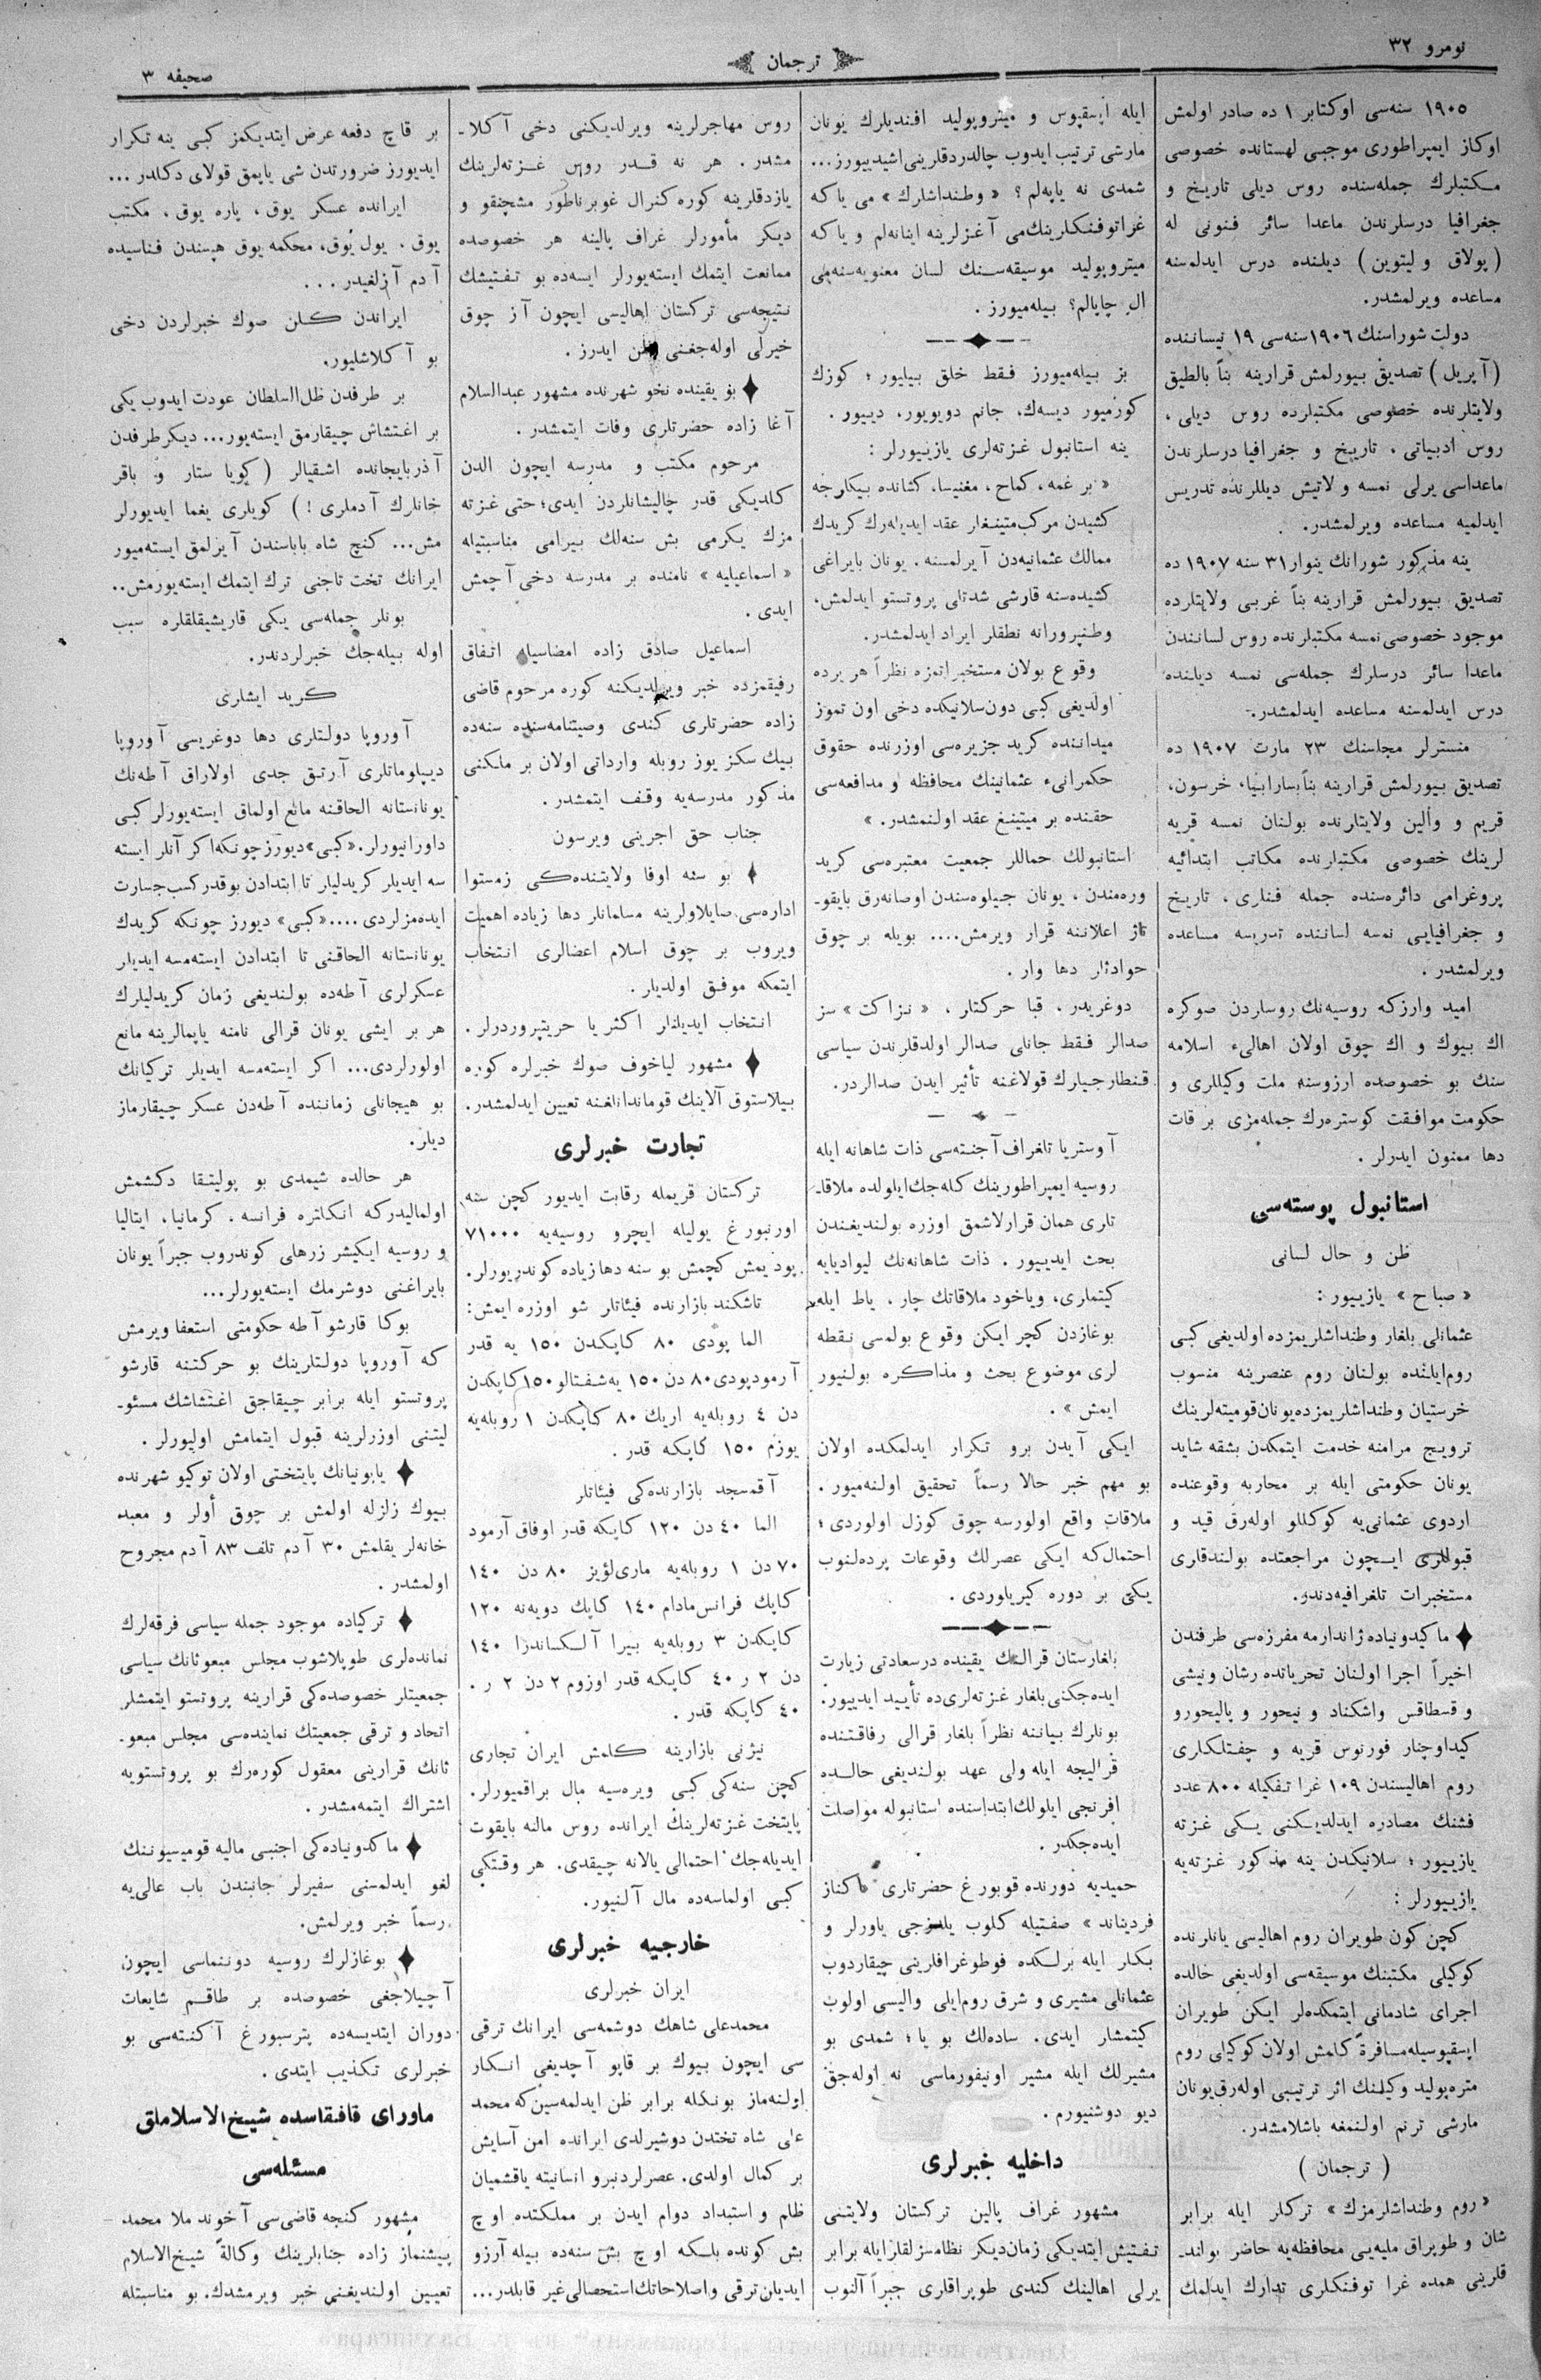 نومرو ٣٢
ترجمان
صحيفه ٣
١٩٠٥ سنه‌سى اوكتابر ١ ده صادر اولمش
اوكاز ايمپراطورى موجبى لهستانده خصوصى
مكتبلرك جمله‌سنده روس ديلى تاريخ و
جغرافيا درسلرندن ماعدا سائر فنونى له
(پولاق و ليتوين) ديلنده درس ايدلمسنه
مساعده ويرلمشدر.
دولت شوراسنك ١٩٠٦ سنه‌سى ١٩ نيساننده
(آپريل) تصديق بيورلمش قرارينه بناً بالطيق
ولايتلرنده خصوصى مكتبلرده روس ديلى ،
روس ادبياتى ، تاريخ و جغرافيا درسلرندن
ماعداسى يرلى نمسه و لاتيش ديللرنده تدريس
ايدلميه مساعده ويرلمشدر.
ينه مذكور شورانك ينوار ٣١ سنه ١٩٠٧ ده
تصديق بيورلمش قرارينه بناً غربى ولايتلرده
موجود خصوصى نمسه مكتبلرنده روس لسانندن
ماعدا سائر درسلرك جمله‌سى نمسه ديلنده
درس ايدلمسنه مساعده ايدلمشدر.
منسترلر مجلسنك ٢٣ مارت ١٩٠٧ ده
تصديق بيورلمش قرارينه بناً بسارابيا، خرسون،
قريم و والين ولايتلرنده بولنان نمسه قريه
لرينك خصوصى مكتبلرنده مكاتب ابتدائيه
پروغرامى دائره‌سنده جمله فنلرى ، تاريخ
و جغرافيايى نمسه لساننده تدريسه مساعده
ويرلمشدر .
اميد وارزكه روسيه‌نك روسلردن صوكره
اك بيوك و اك چوق اولان اهالىء اسلامه
سنك بو خصوصده ارزوسنه ملت وكيللرى و
حكومت موافقت كوستره‌رك جمله‌مزى بر قات
دها ممنون ايدرلر .
استانبول پوسته‌سى
ظن و حال لسانى
«صباح» يازييور :
عثمانلى بلغار وطنداشلريمزده اولديغى كبى
روم‌ايلنده بولنان روم عنصرينه منسوب
خرستيان وطنداشلريمزده يونان قوميته‌لرينك
ترويج مرامنه خدمت ايتمكدن بشقه شايد
يونان حكومتى ايله بر محاربه وقوعنده
اردوى عثمانى‌يه كوكللو اوله‌رق قيد و
قبوللرى ايچون مراجعتده بولندقلرى
مستخبرات تلغرافيه‌دندر.
ماكيدونياده ژاندارمه مفرزه‌سى طرفندن
اخيراً اجرا اولنان تحرياتده رشان ونيشى
و قسطاقس واشكناد و نيحور و پاليحورو
كيداوچنار فورنوس قريه و چفتلكلرى
روم اهاليسندن ١٠٩ غرا تفكيله ٨٠٠ عدد
فشنك مصادره ايدلديكنى يكى غزته
يازييور ؛ سلانيكدن ينه مذكور غزته‌يه
يازييورلر :
كچن كون طويران روم اهاليسى يانلرنده
كوكيلى مكتبنك موسيقه‌سى اولديغى حالده
اجراى شادمانى ايتمكده‌لر ايكن طويران
اپسقپوسيله مسافرةً كلمش اولان كوكيلى روم
متره‌پوليد وكيلنك اثر ترتيبى اوله‌رق يونان
مارشى ترنم اولنمغه باشلامشدر.
(ترجمان)
«روم وطنداشلرمزك» تركلر ايله برابر
شان و طوپراق مليه‌يى محافظه‌يه حاضر بولند-
قلرينى همده غرا توفنكلرى تدارك ايدلمك
ايله اپسقپوس و ميتروپوليد افنديلرك يونان
مارشى ترتيب ايدوب چالدردقلرينى اشيدييورز...
شمدى نه ياپه‌لم ؟ «وطنداشلرك» مى ياكه
غراتوفنكلرينك‌مى آغزلرينه اينانه‌لم و ياكه
ميتروپوليد موسيقه‌سنك لسان معنويه‌سنه‌مى
ال چاپالم؟ بيله‌ميورز .
بز بيله‌ميورز فقط خلق بيليور ؛ كوزك
كورميور ديسه‌ك، جانم دويويور، دييور .
ينه استانبول غزته‌لرى يازييورلر :
«برغمه، كماح، مغنيسا، كشانده بيكلرجه
كشيدن مركب ميتينغلر عقد ايديله‌رك كريدك
ممالك عثمانيه‌دن آيرلمسنه، يونان بايراغى
كشيده‌سنه قارشى شدتلى پروتستو ايدلمش،
وطنپرورانه نطقلر ايراد ايدلمشدر.
وقوع بولان مستخبراتمزه نظراً هر يرده
اولديغى كبى دون سلانيكده دخى اون تموز
ميداننده كريد جزيره‌سى اوزرنده حقوق
حكمرانىء عثمانينك محافظه و مدافعه‌سى
حقنده بر ميتينغ عقد اولنمشدر.»
استانبولك حماللر جمعيت معتبره‌سى كريد
وره‌مندن ، يونان جيلوه‌سندن اوصانه‌رق بايقو-
تاژ اعلاننه قرار ويرمش.... بويله بر چوق
حوادثلر دها وار .
دوغريدر، قبا حركتلر ، «نزاكت» سز
صدالر فقط جانلى صدالر اولدقلرندن سياسى
قنطارجيلرك قولاغنه تأثير ايدن صدالردر.
آوستريا تلغراف آجنته‌سى ذات شاهانه ايله
روسيه ايمپراطورينك كله‌جك ايلولده ملاقا-
تلرى همان قرارلاشمق اوزره بولنديغندن
بحث ايدييور . ذات شاهانه‌نك ليواديايه
كيتملرى، وياخود ملاقاتك چار، ياط ايله
بوغازدن كچر ايكن وقوع بولمسى نقطه
لرى موضوع بحث و مذاكره بولنيور
ايمش» .
ايكى آيدن برو تكرار ايدلمكده اولان
بو مهم خبر حالا رسماً تحقيق اولنه‌ميور .
ملاقات واقع اولورسه چوق كوزل اولوردى ؛
احتمال كه ايكى عصرلك وقوعات پرده‌لنوب
يكى بر دوره كيريلوردى .
بلغارستان قرالنك يقينده درسعادتى زيارت
ايده‌جكنى بلغار غزته‌لرى‌ده تأييد ايدييور.
بونلرك بياننه نظراً بلغار قرالى رفاقتنده
قراليچه ايله ولى عهد بولنديغى حالده
افرنجى ايلولك ابتداسنده استانبوله مواصلت
ايده‌جكدر .
حميديه دورنده قوبورغ حضرتلرى «كناز
فرديناند» صفتيله كلوب يلدزجى ياورلر و
بكلر ايله برلكده فوطوغرافلرينى چيقاردوب
عثمانلى مشيرى و شرق روم‌ايلى واليسى اولوب
كيتمشلر ايدى. ساده‌لك بو يا ؛ شمدى بو
مشيرلك ايله مشير اونيفورماسى نه اوله‌جق
ديو دوشنيورم .
داخليه خبرلرى
مشهور غراف پالين تركستان ولايتنى
تفتيش ايتديكى زمان ديكر نظامسزلقلر ايله برابر
يرلى اهالينك كندى طوپراقلرى جبراً آلنوب
روس مهاجرلرينه ويرلديكنى دخى آكلا-
مشدر . هر نه قدر روس غزته‌لرينك
يازدقلرينه كوره كنرال غوبرناطور مشچنقو و
ديكر مأمورلر غراف پالينه هر خصوصده
ممانعت ايتمك ايسته‌يورلر ايسه‌ده بو تفتيشك
نتيجه‌سى تركستان اهاليسى ايچون آز چوق
خيرلى اوله‌جغنى ظن ايدرز .
بو يقينده نخو شهرنده مشهور عبدالسلام
آغا زاده حضرتلرى وفات ايتمشدر .
مرحوم مكتب و مدرسه ايچون الدن
كلديكى قدر چاليشانلردن ايدى؛ حتى غزته
مزك يكرمى بش سنه‌لك بيرامى مناسبتيله
«اسماعيليه» نامنده بر مدرسه دخى آچمش
ايدى .
اسماعيل صادق زاده امضاسيله اتفاق
رفيقمزده خبر ويرلديكنه كوره مرحوم قاضى
زاده حضرتلرى كندى وصيتنامه‌سنده سنه‌ده
بيك سكز يوز روبله وارداتى اولان بر ملكنى
مذكور مدرسه‌يه وقف ايتمشدر .
جناب حق اجرينى ويرسون
بو سنه اوفا ولايتنده‌كى زمستوا
اداره‌سى صايلاولرينه مسلمانلر دها زياده اهميت
ويروب بر چوق اسلام اعضالرى انتخاب
ايتمكه موفق اولديلر .
انتخاب ايديلنلر اكثريا حريتپروردرلر .
مشهور لياخوف صوك خبرلره كوره
بيلاستوق آلاينك قومانداناغنه تعيين ايدلمشدر.
تجارت خبرلرى
تركستان قريمله رقابت ايديور كچن سنه
اورنبورغ يوليله ايچرو روسيه‌يه ٧١٠٠٠
پود يمش كچمش بو سنه دها زياده كوندريورلر.
تاشكند بازارنده فيئاتلر شو اوزره ايمش:
الما پودى ٨٠ كاپكدن ١٥٠ يه قدر
آرمود پودى ٨٠ دن ١٥٠ يه شفتالو ١٥٠ كاپكدن
دن ٤ روبله‌يه اريك ٨٠ كاپكدن ١ روبله‌يه
يوزم ١٥٠ كاپكه قدر .
آقمسجد بازارنده‌كى فيئاتلر
الما ٤٠ دن ١٢٠ كاپكه قدر اوفاق آرمود
٧٠ دن ١ روبله‌يه مارى‌لؤيز ٨٠ دن ١٤٠
كاپك فرانس‌مادام ١٤٠ كاپك دويه‌نه ١٢٠
كاپكدن ٣ روبله‌يه بيرا آلكساندرا ١٤٠
دن ٢ ر ٤٠ كاپكه قدر اوزوم ٢ دن ٢ ر .
٤٠ كاپكه قدر .
نيژنى بازارينه كلمش ايران تجارى
كچن سنه‌كى كبى ويره‌سيه مال براقميورلر.
پايتخت غزته‌لرينك ايرانده روس مالنه بايقوت
ايديله‌جك احتمالى يالانه چيقدى. هر وقتكى
كبى اولماسه‌ده مال آلنيور.
خارجيه خبرلرى
ايران خبرلرى
محمدعلى شاهك دوشمه‌سى ايرانك ترقى
سى ايچون بيوك بر قاپو آچديغى انكار
اولنه‌ماز بونكله برابر ظن ايدلمه‌سين كه محمد
على شاه تختدن دوشيرلدى ايرانده امن آسايش
بر كمال اولدى. عصرلردنبرو انسانيته ياقشميان
ظلم و استبداد دوام ايدن بر مملكتده اوچ
بش كونده بلكه اوچ بش سنه‌ده بيله آرزو
ايديلن ترقى و اصلاحاتك استحصالى غير قابلدر...
بر قاچ دفعه عرض ايتديكمز كبى ينه تكرار
ايديورز ضرورتدن شى ياپمق قولاى دكلدر ...
ايرانده عسكر يوق ، پاره يوق ، مكتب
يوق ، يول يوق، محكمه يوق هپسندن فناسيده
آدم آزلغيدر . . .
ايراندن كلن صوك خبرلردن دخى
بو آكلاشليور.
بر طرفدن ظل‌السلطان عودت ايدوب يكى
بر اغتشاش چيقارمق ايسته‌يور... ديكر طرفدن
آذربايجانده اشقيالر (كويا ستار و باقر
خانلرك آدملرى !) كويلرى يغما ايديورلر
مش... كنج شاه باباسندن آيرلمق ايسته‌ميور
ايرانك تخت تاجنى ترك ايتمك ايسته‌يورمش..
بونلر جمله‌سى يكى قاريشيقلقلره سبب
اوله بيله‌جك خبرلردندر.
كريد ايشلرى
آوروپا دولتلرى دها دوغريسى آوروپا
ديپلوماتلرى آرتق جدى اولاراق آطه‌نك
يونانستانه الحاقنه مانع اولماق ايسته‌يورلر كبى
داورانيورلر. «كبى» ديورز چونكه اكر آنلر ايسته
سه ايديلر كريدليلر تا ابتدادن بوقدر كسب جسارت
ايده‌مزلردى .... «كبى» ديورز چونكه كريدك
يونانستانه الحاقنى تا ابتدادن ايسته‌مسه ايديلر
عسكرلرى آطه‌ده بولنديغى زمان كريدليلرك
هر بر ايشى يونان قرالى نامنه ياپمالرينه مانع
اولورلردى... اكر ايسته‌مسه ايديلر تركيانك
بو هيجانلى زماننده آطه‌دن عسكر چيقارماز
ديلر.
هر حالده شيمدى بو پوليتقا دكشمش
اولماليدركه انكلتره فرانسه، كرمانيا، ايتاليا
و روسيه ايكيشر زرهلى كوندروب جبراً يونان
بايراغنى دوشرمك ايسته‌يورلر...
بوكا قارشو آطه حكومتى استعفا ويرمش
كه آوروپا دولتلرينك بو حركتنه قارشو
پروتستو ايله برابر چيقاجق اغتشاشك مسئو-
ليتنى اوزرلرينه قبول ايتمامش اوليورلر .
ياپونيانك پايتختى اولان توكيو شهرنده
بيوك زلزله اولمش بر چوق أولر و معبد
خانه‌لر يقلمش ٣٠ آدم تلف ٨٣ آدم مجروح
اولمشدر .
تركياده موجود جمله سياسى فرقه‌لرك
نمانده‌لرى طوپلاشوب مجلس مبعوثانك سياسى
جمعيتلر خصوصده‌كى قرارينه پروتستو ايتمشلر
اتحاد و ترقى جمعيتك نماينده‌سى مجلس مبعو-
ثانك قرارينى معقول كوره‌رك بو پروتستويه
اشتراك ايتمه‌مشدر .
ماكدونياده‌كى اجنبى ماليه قوميسيوننك
لغو ايدلمسنى سفيرلر جانبندن باب عالى‌يه
رسماً خبر ويرلمش.
بوغازلرك روسيه دوننماسى ايچون
آچيلاجغى خصوصده بر طاقم شايعات
دوران ايتديسه‌ده پترسبورغ آكنته‌سى بو
خبرلرى تكذيب ايتدى .
ماوراى قافقاسده شيخ‌الاسلاملق
مسئله‌سى
مشهور كنجه قاضى‌سى آخوند ملا محمد
پيشنماز زاده جنابلرينك وكالةً شيخ‌الاسلام
تعيين اولنديغنى خبر ويرمشدك. بو مناسبتله